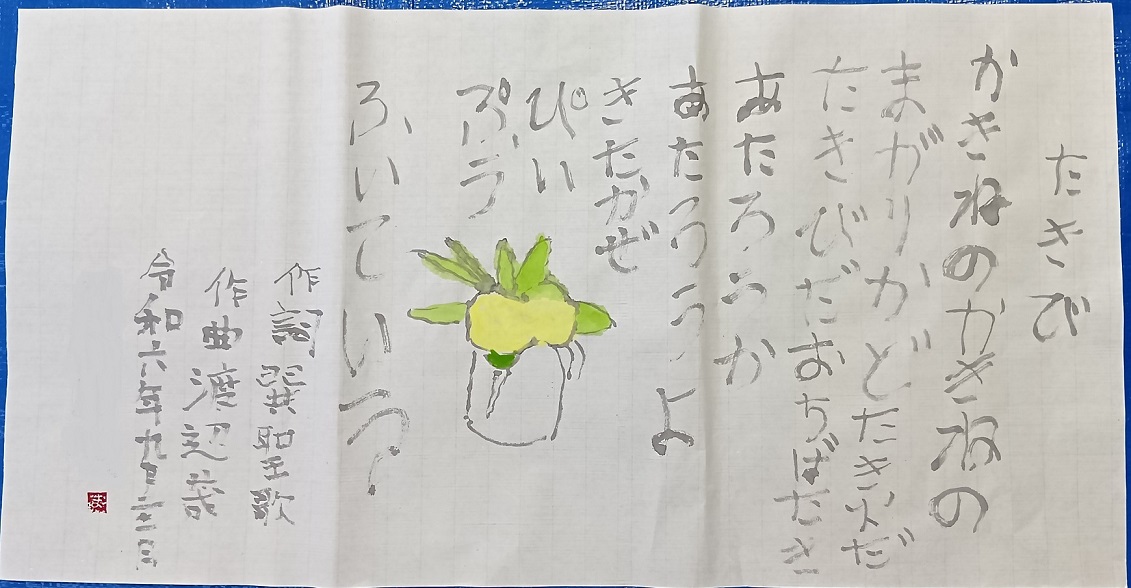 たきび
かきねのかきねの
まがりかどたき火だ
たきびだおちばたき
あたろうか
あたろうよ
きたかぜ
ぴい
ぷう
ふいている
作詞 巽聖歌
作曲 渡辺茂
令和六年九月二十二日